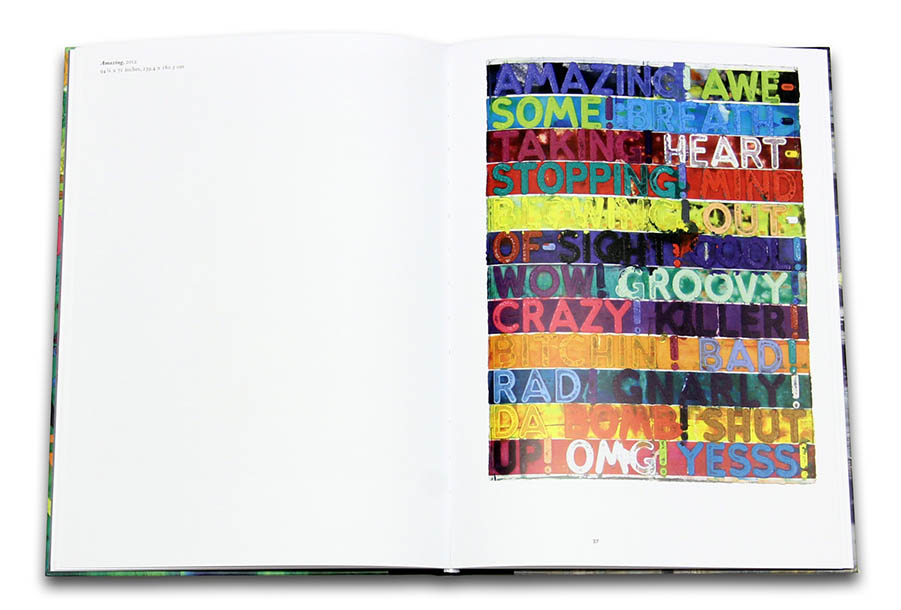 Amazing, 2012
94 ½ x 71 inches, 239.4 x 180.3 cm
AMAZING! AWE-
SOME! BREATH-
TAKING! HEART-
STOPPING! MIND
BLOWING! OUT-
OF-SIGHT! COOL!
WOW! GROOVY!
CRAZY! KILLER!
BITCHIN'! BAD!
RAD! GNARLY!
DA BOMB! SHUT
UP! OMG! YESSS!
37